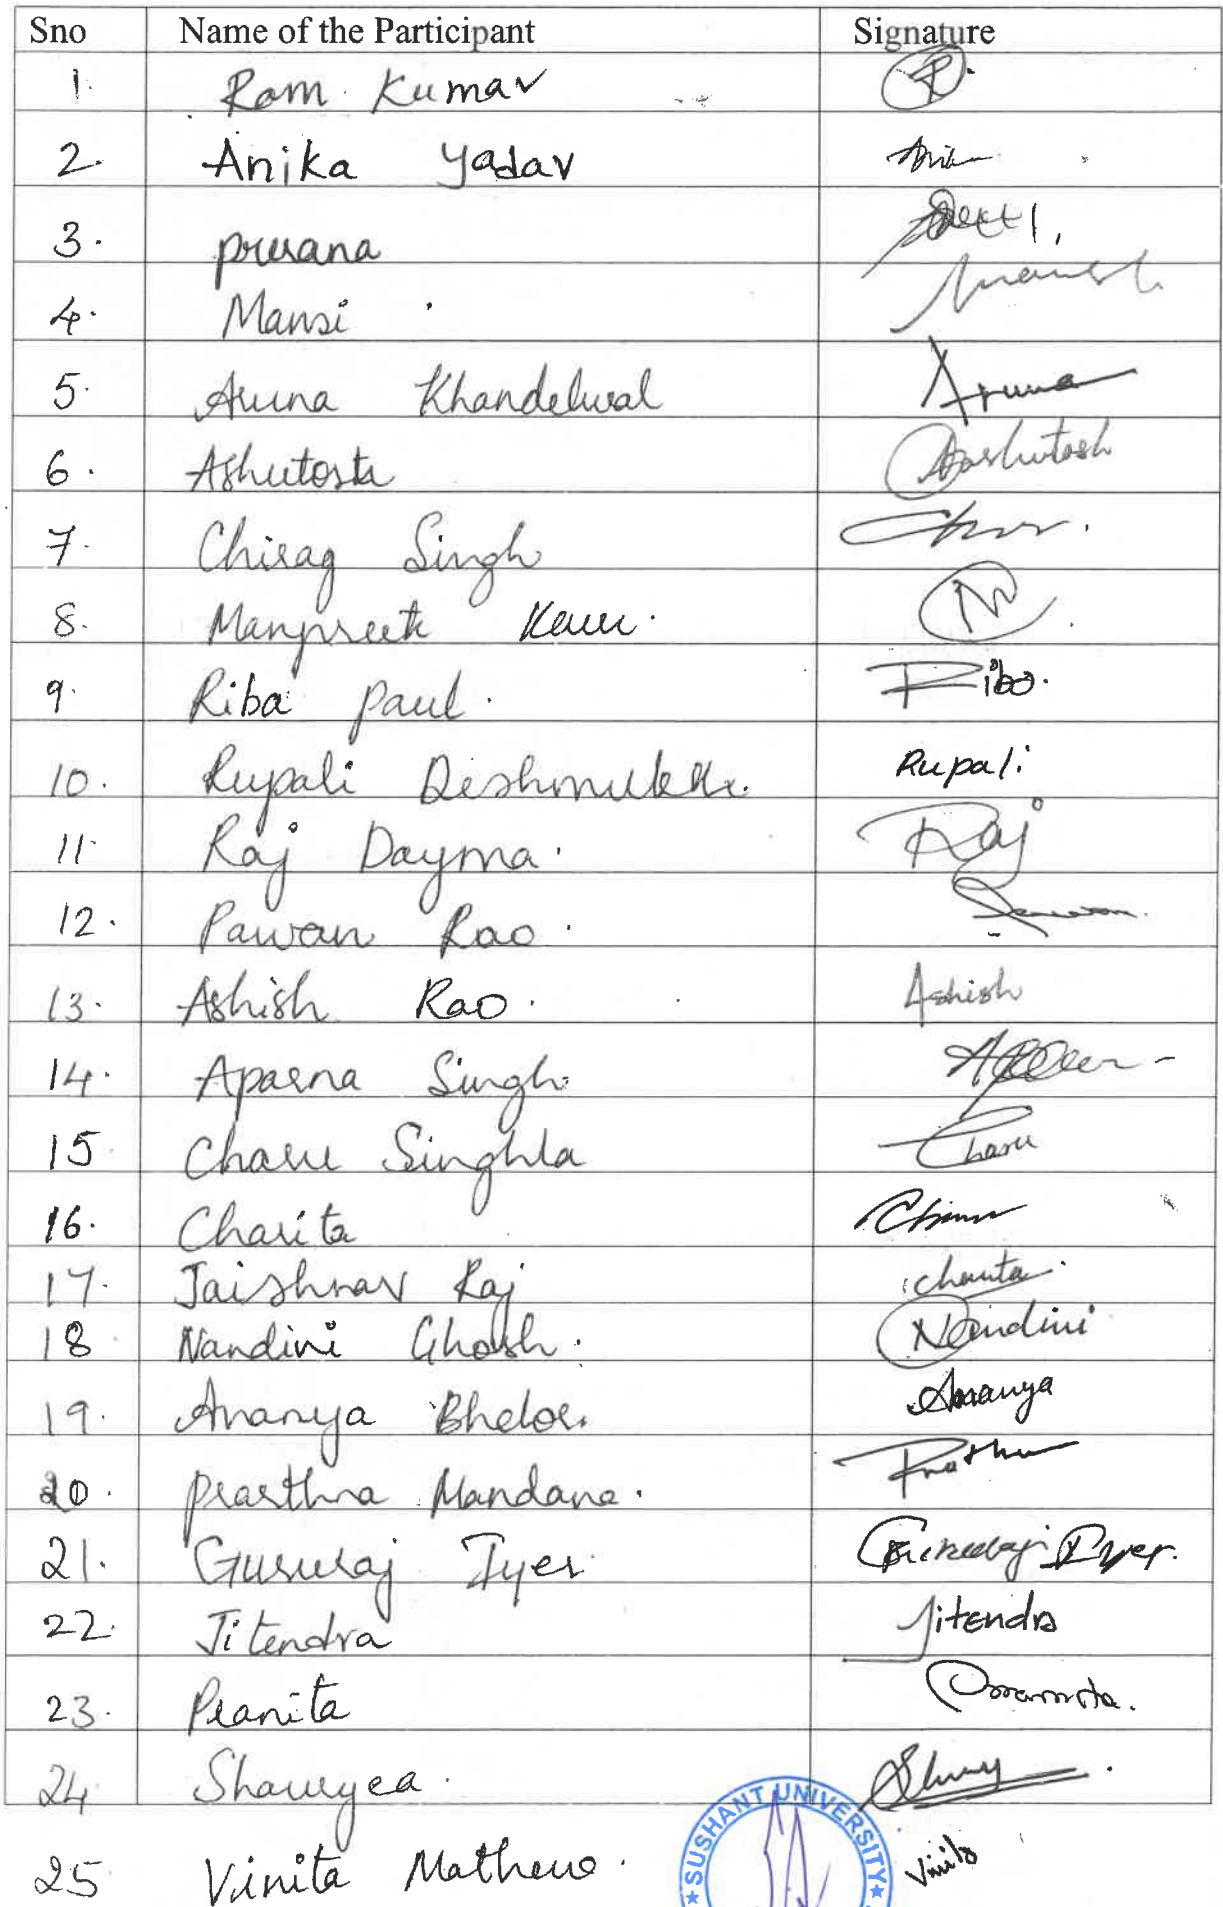 Sno Name of the Participant Signature
1. Ram Kumar
2. Anika Yadav
3. prerana
4. Mansi
5. Aruna Khandelwal Aruna
6. Ashutosh Aashutosh
7. Chirag Singh
8. Manpreet Kaur.
9. Riba Paul. Riba.
10. Rupali Deshmukh. Rupali
11. Raj Dayma. Raj
12. Pawan Rao.
13. Ashish Rao. Ashish
14. Aparna Singh
15 Charu Singhla Charu
16. Charita
17. Jaishnav Raj Charita
18 Nandini Ghosh. Nandini
19. Ananya Ananya
20. Prarthna Mandana.
21. Gururaj Iyer Gururaj Iyer.
22. Jitendra Jitendra
23. Pranita
24 Shauryea.
25 Vinita Mathew. Vinita
SUSHANT UNIVERSITY